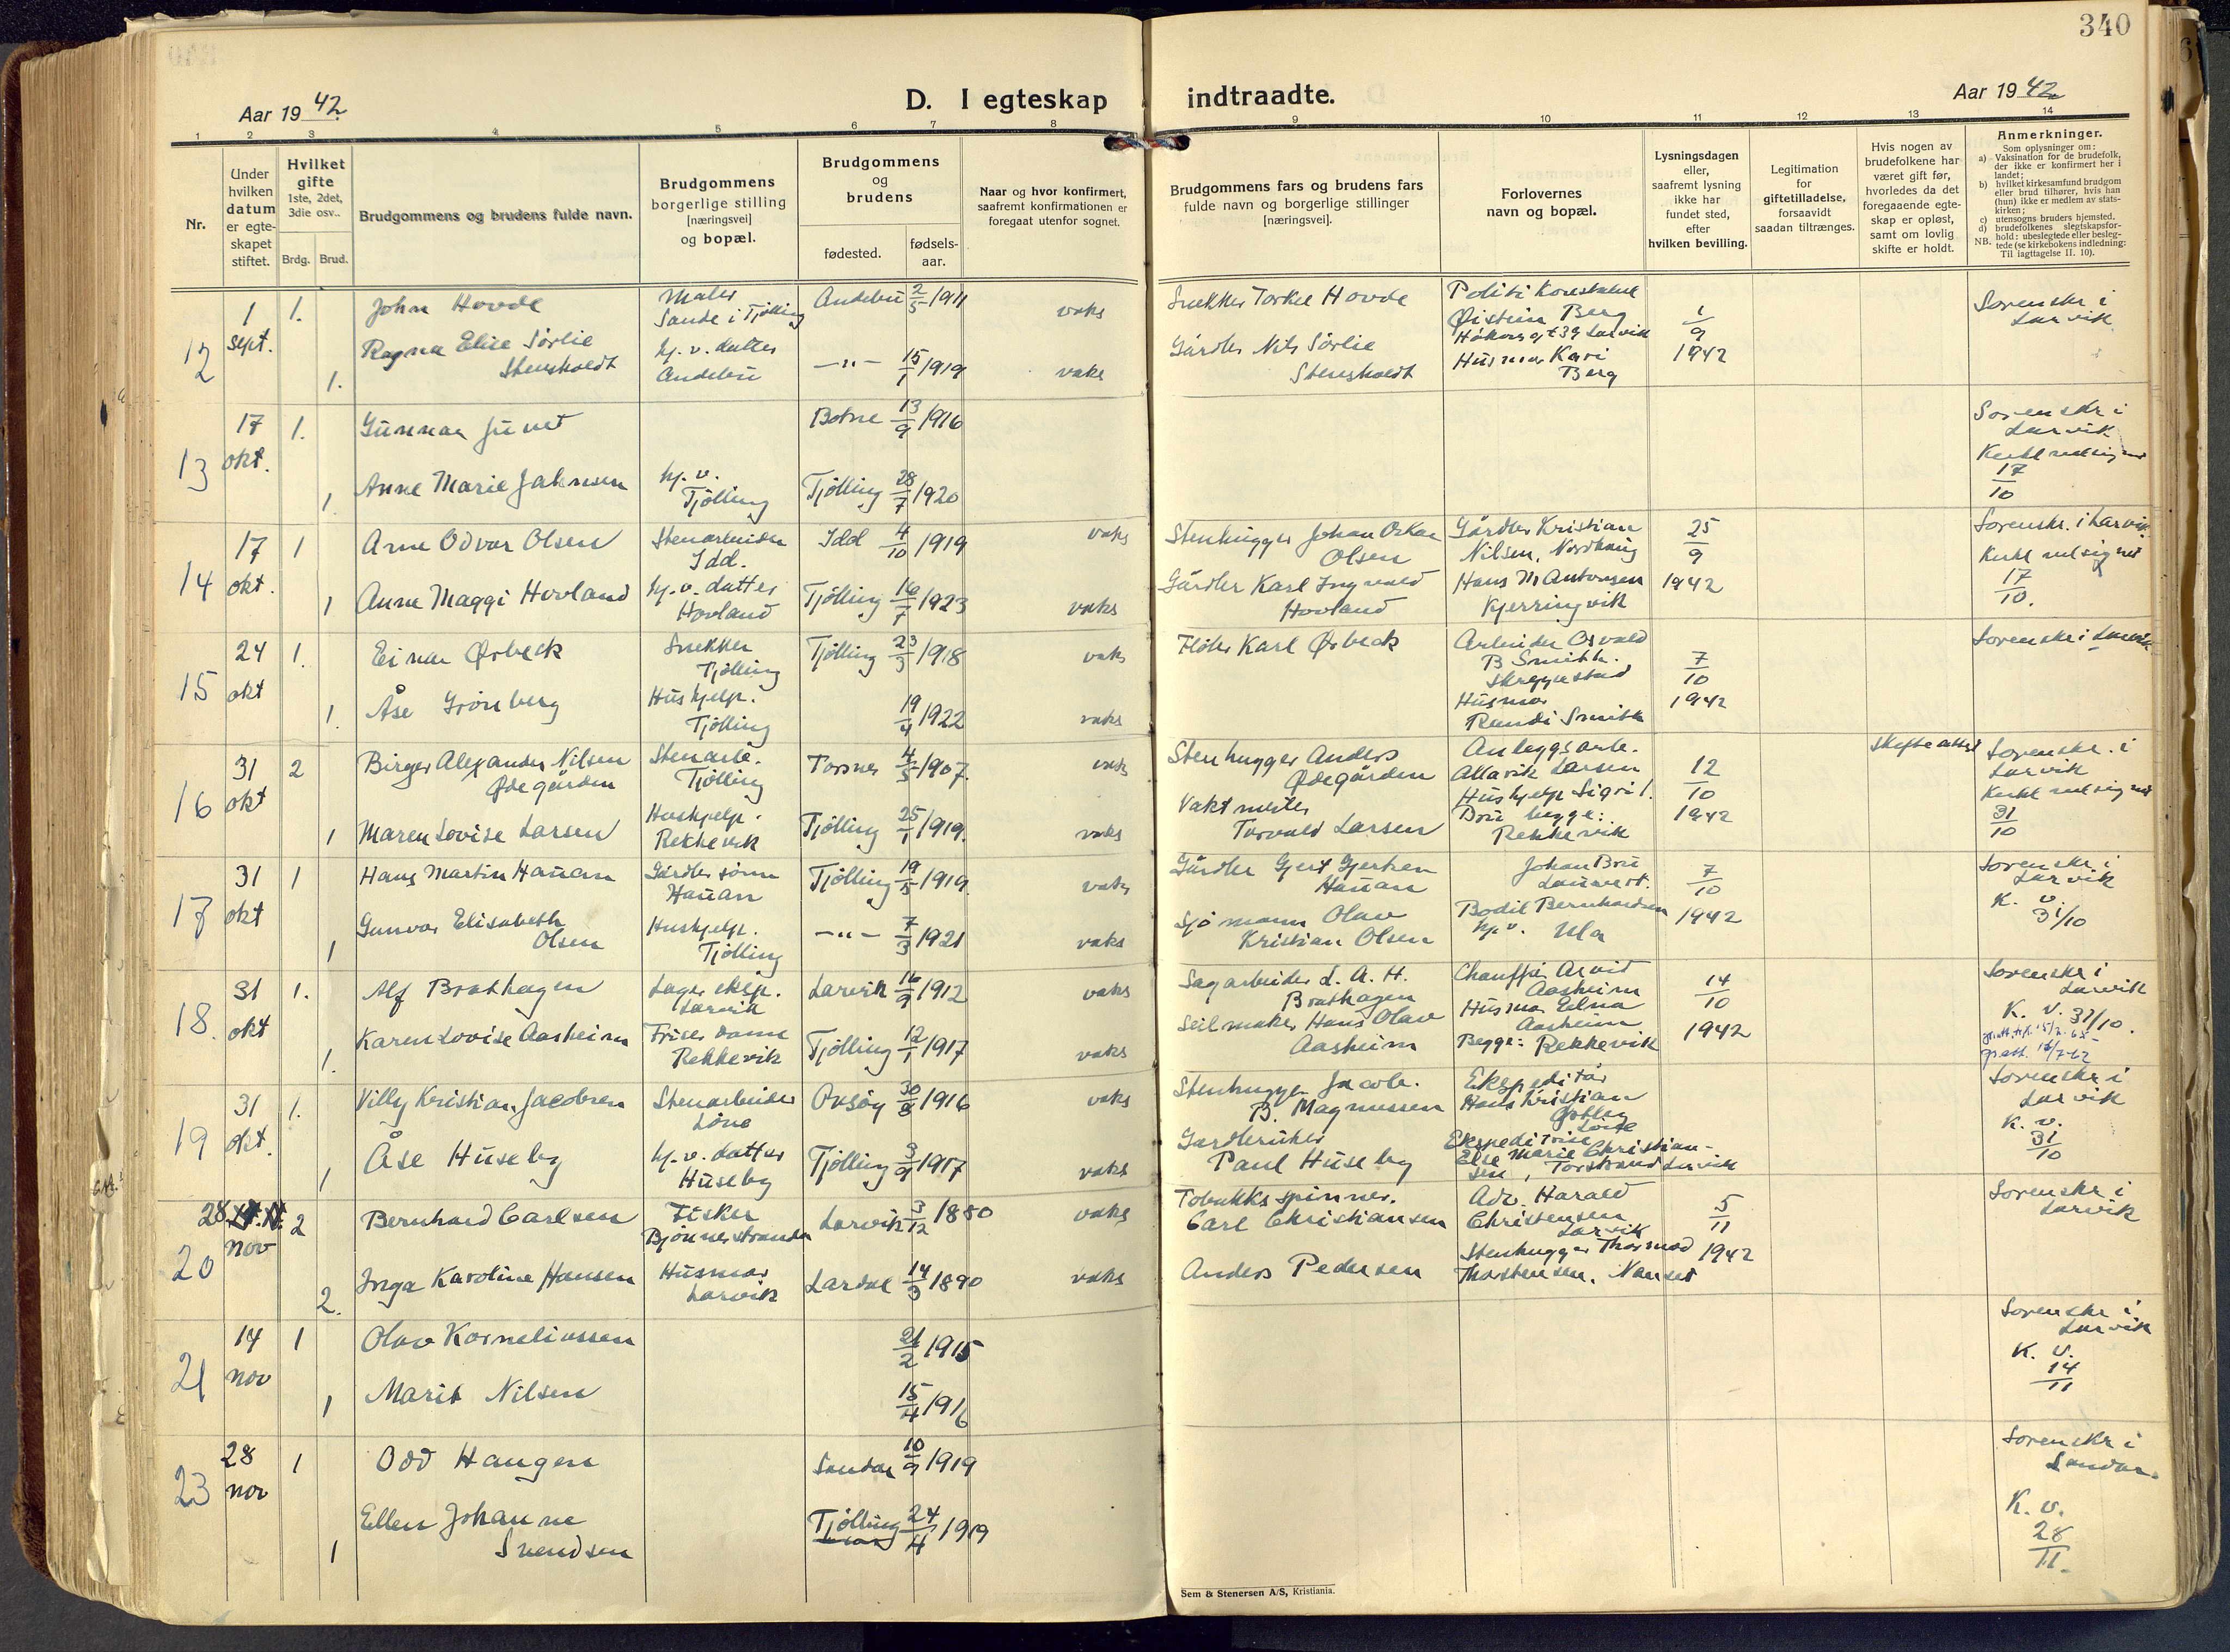 340
Aar 1942.
D. I egteskap indtraadte.
Aar 1942
1 2 3 4 5 6 7 8 9 10 11 12 13 14
Nr.
Under hvilken datum er egte-skapet stiftet.
Hvilket gifte
1ste, 2det, 3die osv..
Brdg. Brud.
Brudgommens og brudens fulde navn.
Brudgommens borgerlige stilling [næringsvei] og bopæl.
Brudgommens og brudens
fødested.
fødsels-aar.
Naar og hvor konfirmert, saafremt konfirmationen er foregaat utenfor sognet.
Brudgommens fars og brudens fars fulde navn og borgerlige stillinger [næringsvei].
Forlovernes navn og bopæl.
Lysningsdagen eller, saafremt lysning ikke har fundet sted, efter hvilken bevilling.
Legitimation for giftetilladelse, forsaavidt saadan tiltrænges.
Hvis nogen av brudefolkene har været gift før, hvorledes da det foregaaende egte-skap er opløst, samt om lovlig skifte er holdt.
Anmerkninger.
Som oplysninger om:
a) Vaksination for de brudefolk, der ikke er konfirmert her i landet;
b) hvilket kirkesamfund brudgom eller brud tilhører, hvis han (hun) ikke er medlem av stats-kirken;
c) utensogns bruders hjemsted.
d) brudefolkenes slegtskapsfor-hold: ubeslegtede eller besleg-tede (se kirkebokens indledning:
NB. Til iagttagelse II. 10).
12
1 sept.
1.
John Hovde
Maler
Sande i Tjølling
Andebu 2/5 1911
vaks
Snekker Torkel Hovde
Politi Konstabel
Øistein Berg
Håkons gt 39 Larvik
1/9 1942
Sorenskr. i Larvik
1.
Ragna Elise Sørlie
Stensholdt
hj. v. datter
Andebu
-"- 15/1 1919
vaks
Gårdbr Nils Sørlie
Stensholdt
Husmor Kari Berg
13
17 okt.
1.
Gunnar Juvet
Botne 13/9 1916
Sorenskr i Larvik
Kirkl velsignet
17/10
1
Anne Marie Jahnsen
hj. v.
Tjølling
Tjølling 28/7 1920
14
17 okt.
1
Arne Odvar Olsen
Stenarbeider
Idd.
Idd 4/10 1919
vaks
Stenhugger Johan Oskar
Olsen
Gårdbr Kristian
Nilsen, Nordhaug
25/9 1942
Sorenskr. i Larvik.
Kirkl velsignet
17/10.
1
Anne Maggi Hovland
hj. v. datter
Hovland
Tjølling 16/7 1923
vaks
Gårdbr Karl Ingvald
Hovland
Hans M Antonsen
Kjerringvik
15
24 okt
1.
Einar Ørbeck
Snekker
Tjølling
Tjølling 23/3 1918
vaks
Fløter Karl Ørbeck
Arbeider Osvald
B Smith.
Skreppestad
7/10 1942
Sorenskr i Larvik
1.
Åse Grønberg
Hushjelp.
Tjølling
19/4 1922
vaks
Husmor
Randi Smith
16
31 okt
2
Birger Alexander Nilsen
Ødegården
Stenarb.
Tjølling
Torsnes 4/5 1907.
vaks
Stenhugger Anders
Ødegården
Anleggsarb.
Larsen
12/10 1942
Skifte attest
Sorenskr. i
Larvik
Kirkl velsignet
31/10
1
Maren Lovise Larsen
Hushjelp.
Rekkevik
Tjølling 25/1 1919.
vaks
Vaktmester
Torvald Larsen
Hushjelp Sigrid
Bru begge:
Rekkevik
17
31 okt
1
Hans Martin Hauan
Gårdbr sønn
Hauan
Tjølling 19/5 1919.
vaks
Gårdbr Gjert Gjertsen
Hauan
Johan Bru
7/10 1942
Sorenskr i
Larvik
K. v.
31/10
1
Gunvor Elisabeth
Olsen
Hushjelp.
Tjølling
-"- 7/3 1921
vaks
Sjømann Olav
Kristian Olsen
Bodil Bernhardsen
hj. v. Ula
18.
31 okt
1.
Alf Brathagen
Lager eksp.
Larvik
Larvik 16/9 1912
vaks
Sagarbeider L. A. H.
Brathagen
Chauffør Arvid
Aasheim
14/10 1942
Sorenskr i
Larvik
K. v. 31/10.
1.
Karen Lovise Aasheim
Friser dame
Rekkevik
Tjølling 12/1 1917
vaks
Seilmaker Hans Olav
Aasheim
Husmor Edna
Aasheim
Begge: Rekkevik
19
31 okt.
1.
Villy Kristian Jacobsen
Stenarbeider
Løve
Onsøy 30/8 1916
vaks
Stenhugger Jacob.
B. Magnussen
Ekspeditør
Hans Kristian
Østby
Sorenskr i
Larvik
K. v.
31/10
1
Åse Huseby
hj. v. datter
Huseby
Tjølling 3/9 1917
vaks
Gardbruker
Paul Huseby
Ekspeditrise
Else Marie Christian-
sen, Torstrand Larvik
20
28 nov
2
Bernhard Carlsen
Fisker
Bjønnesstranden
Larvik 3/12 1880
vaks
Tobakksspinner.
Carl Christiansen
Adv. Harald
Christensen
Larvik
5/11 1942
Sorenskr i
Larvik
2.
Inga Karoline Hansen
Husmor
Larvik
Lardal 14/3 1890
vaks
Anders Pedersen
Stenhugger Thormod
Thorstensen. Nanset
21
14 nov
1
Olav Korneliussen
21/2 1915
Sorenskr i
Larvik
K. v.
14/11
1
Marit Nilsen
15/4 1916
23
28 nov
1
Odd Haugen
Sandar 10/9 1919
Sorenskr i
Sandar.
K. v.
28/11.
1
Ellen Johanne
Svendsen
Tjølling 24/4 1919
Sem & Stenersen A/S, Kristiania.